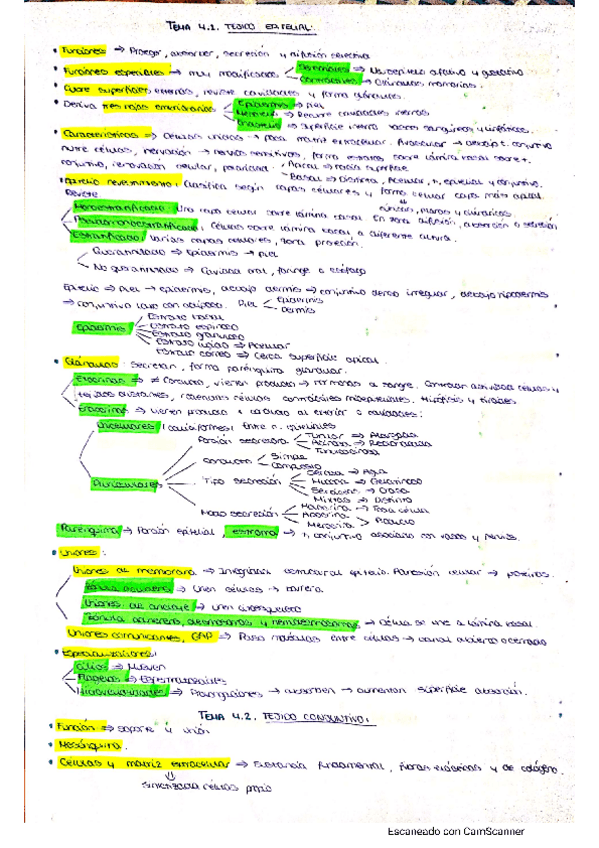 TEMA 4.1. TEJIDO EPITELIAL:
• Funciones ⇒ Proteger, absorber, secreción y difusión selectiva
• Funciones especiales → muy modificados Sensoriales ⇒ Neuroepitelio olfativo y gustativo
Contráctiles ⇒ Glándulas mamarias.
• Cubre superficies externas, reviste cavidades y forma glándulas.
• Deriva tres hojas embrionarias Epidermis → piel
→ Recubre cavidades internas
Endotelio → Superficie interna vasos sanguíneos y linfáticos.
• Características ⇒ Células unidas → poca matriz extracelular. Avascular → tejido t. conjuntivo
nutre células, nervación → nervios sensitivos, forma estratos sobre lámina basal sobre t.
conjuntivo, renovación celular, polaridad. Apical ⇒ hacia superficie
Basal ⇒ t. epitelial y conjuntivo.
• Epitelio revestimiento: Clasifica según capas celulares y forma celular capa más apical.
Reviste cúbicos, planos y cilíndricos.
Monoestratificado: Una capa celular sobre lámina basal. En zona difusión, absorción o secreción
Pseudomonoestratificado: Células sobre lámina basal, a diferente altura.
Estratificado: Varias capas celulares, zona protección.
Queratinizado ⇒ Epidermis → piel
No queratinizado ⇒ Cavidad oral, faringe o esófago
Epitelio ⇒ Piel → epidermis, debajo dermis ⇒ conjuntivo denso irregular, debajo hipodermis
⇒ conjuntivo laxo con adipocitos. Piel Epidermis
Dermis
Epidermis Estrato basal
Estrato espinoso
Estrato granuloso
Estrato lúcido ⇒ Acelular
Estrato córneo ⇒ Cerca superficie apical.
• Glándulas: Secretan, forma parénquima glandular.
Endocrinas ⇒ ≠ Conducto, vierten producto → hormonas a sangre. Controlar actividad células y
tejidos distantes, células independientes. Hipófisis y tiroides
Exocrinas ⇒ vierten producto a conducto al exterior o cavidades:
Unicelulares (caliciformes) Entre c. epiteliales
Pluricelulares
Porción secretora Tubular ⇒ Alargada
Acinosa ⇒ Redondeada
Tubuloacinosa
Conducto Simple
Compuesto
Tipo secreción Serosa → Agua
Mucosa → Gelatinoso
Mixtas → Distinto
Modo secreción Holocrina → Toda célula
Apocrina
Merocrina
Parénquima → Porción epitelial, estroma → t. conjuntivo asociado con vasos y nervios.
• Uniones:
Uniones de membrana ⇒ Integridad estructural epitelio. Adhesión celular → proteínas.
→ Unen células → barrera.
Uniones de anclaje → unir citoesqueleto
desmosomas y hemidesmosomas → célula se une a lámina basal.
Uniones comunicantes, GAP ⇒ Paso moléculas entre células → canal abierto o cerrado
• Especializaciones:
Cilios ⇒ Mueven
Flagelos ⇒ Espermatozoides
Microvellosidades ⇒ Prolongaciones → absorben → aumentan superficie absorción.
TEMA 4.2. TEJIDO CONJUNTIVO:
• Función ⇒ soporte y unión
• Mesénquima.
• Células y matriz extracelular ⇒ Sustancia fundamental, fibras elásticas y de colágeno.
Sintetizada células propio
Escaneado con CamScanner